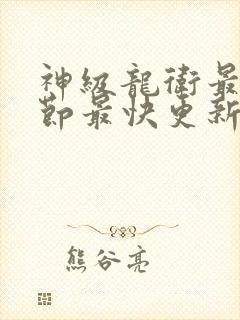 神級龍衛最
節最快更新
熊谷亮